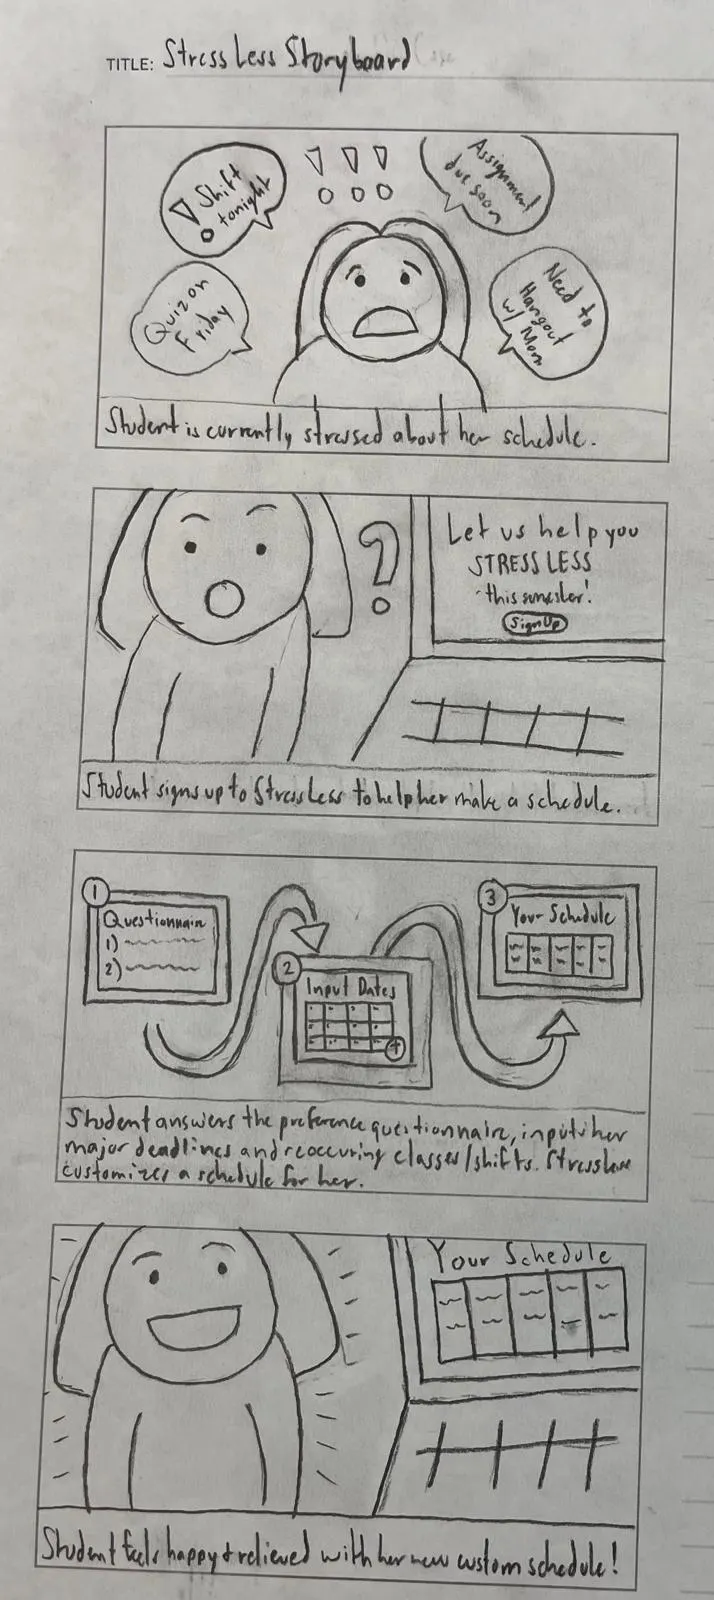 TITLE: Stress Less Storyboard
! Shift
tonight
! ! !
Assignment
due soon
Quiz on
Friday
Need to
Hangout
w/ Mom
Student is currently stressed about her schedule.
?
Let us help you
STRESS LESS
this semester!
Sign Up
Student signs up to StressLess to help her make a schedule.
1
Questionnair
1)
2)
2
Input Dates
+
3
Your Schedule
Student answers the preference questionnaire, inputs her
major deadlines and reoccuring classes/shifts. Stressless
customizes a schedule for her.
Your Schedule
Student feels happy & relieved with her new custom schedule!